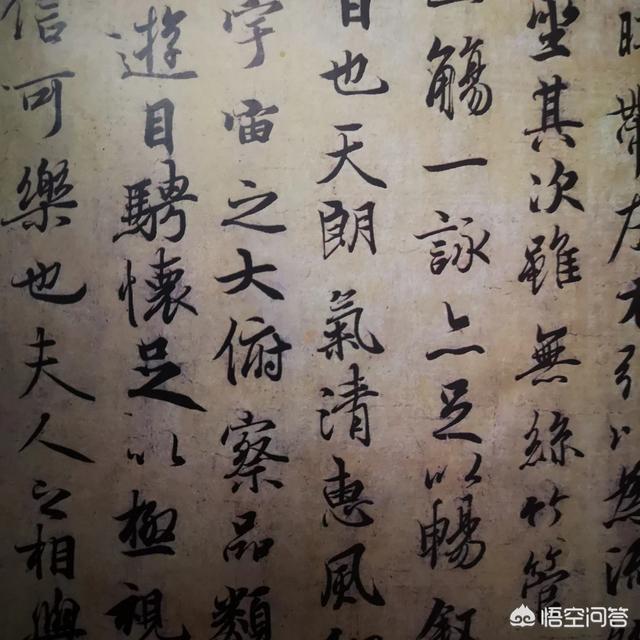 帶左右引以為流
坐其次雖無絲竹管
觴一詠亦足以暢敘
也天朗氣清惠風
宇宙之大俯察品類
遊目騁懷足以極視
信可樂也夫人之相與
悟空问答